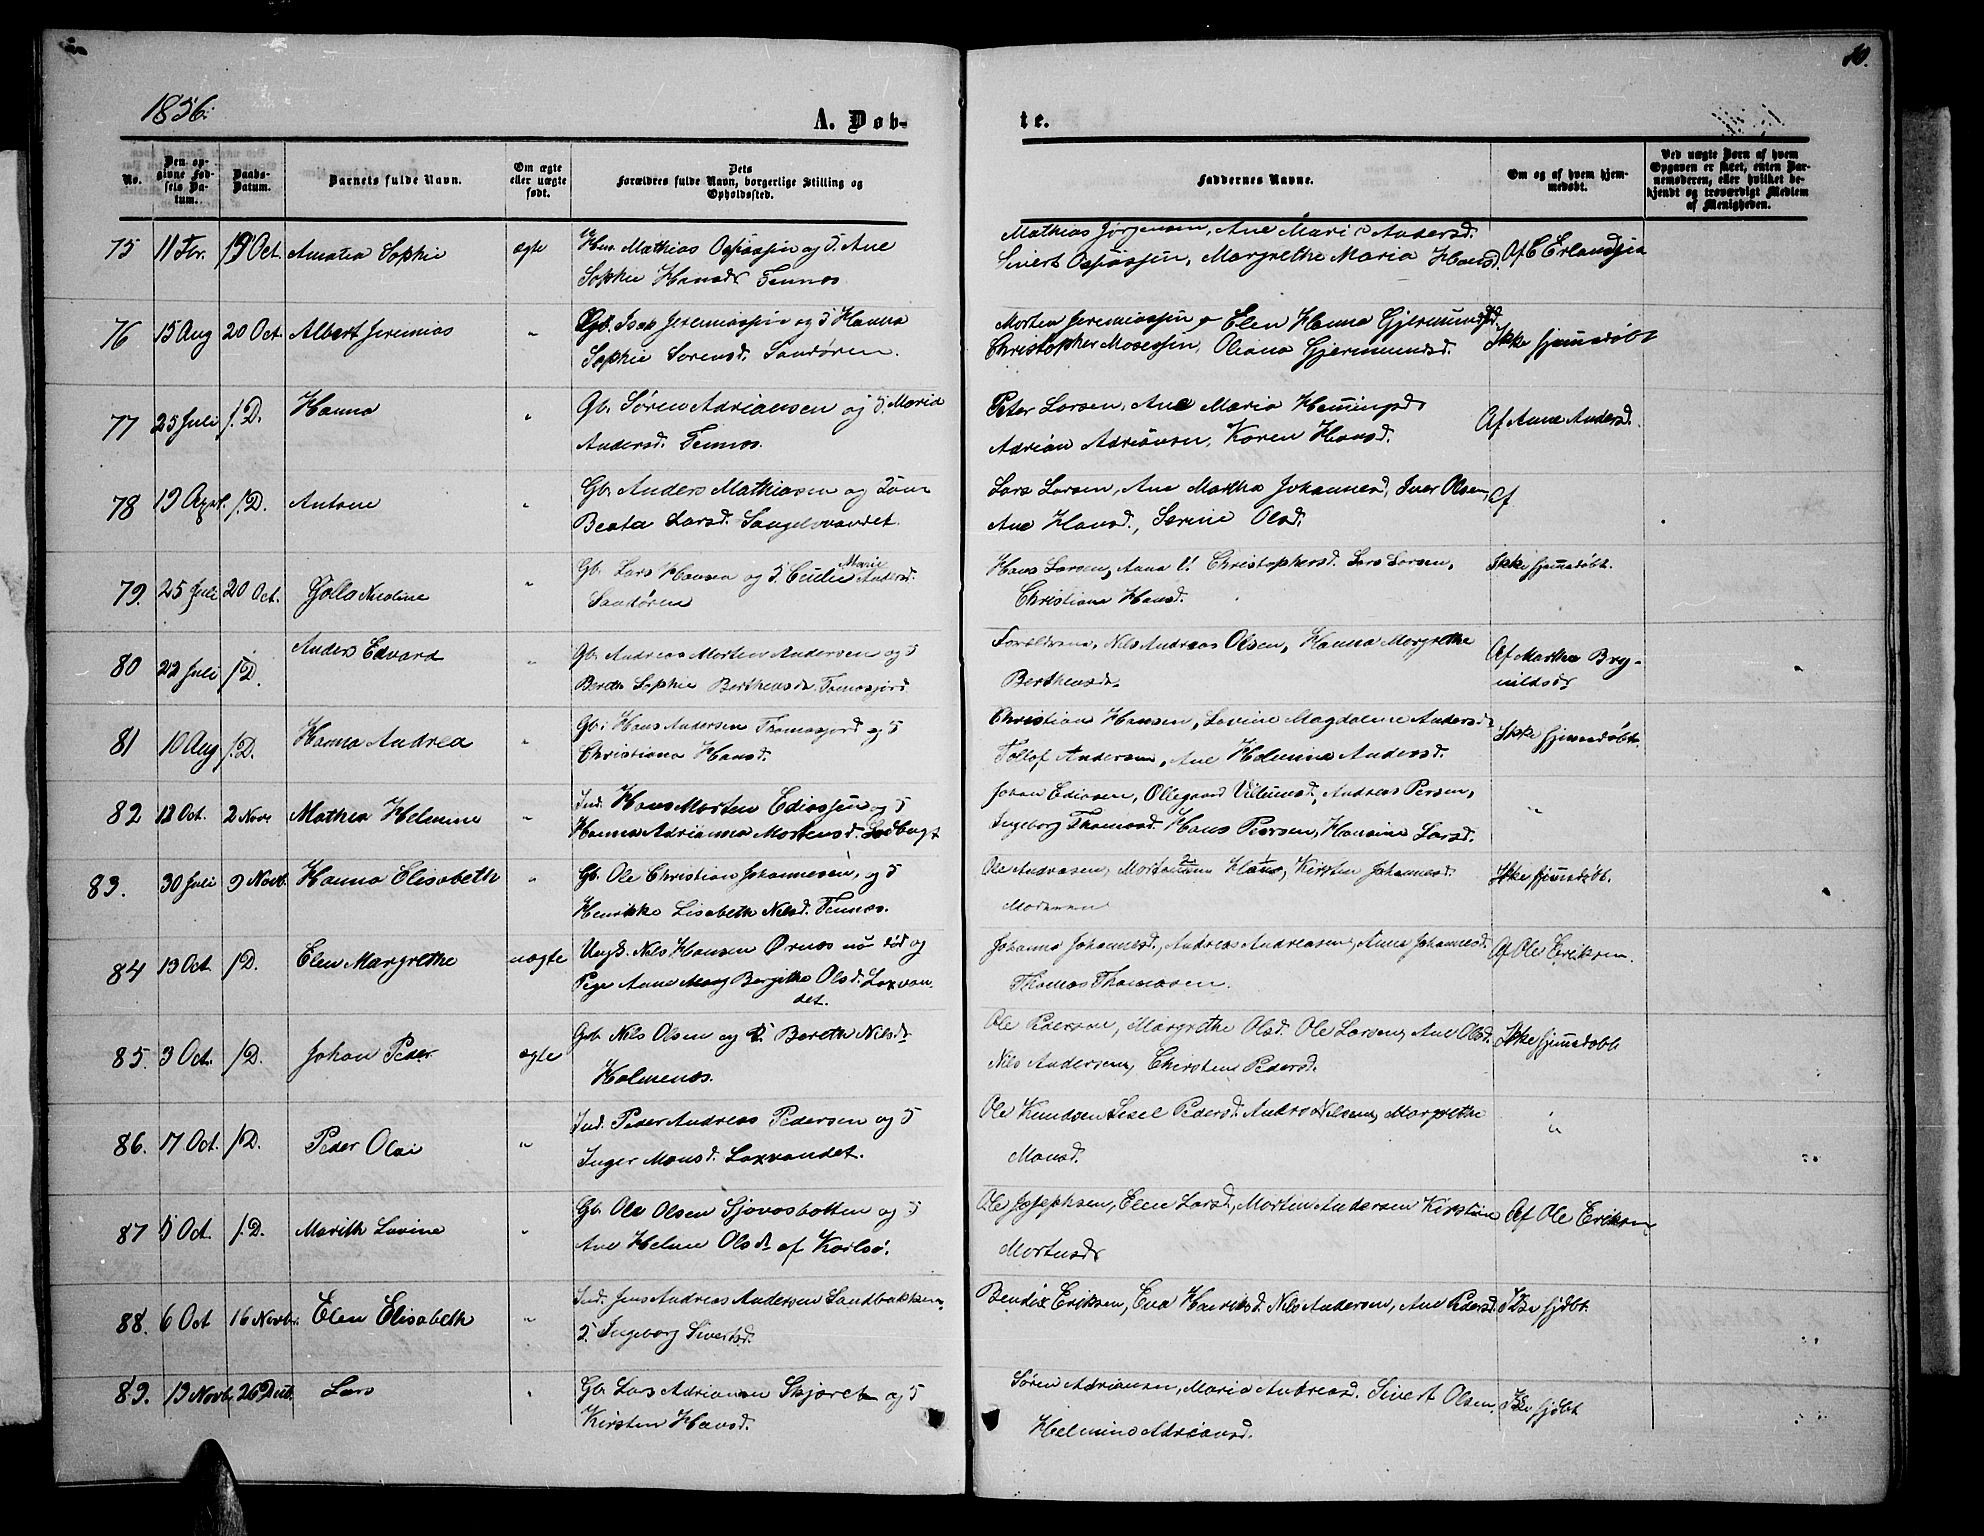 1856.
A. Døb-
te.
10.
No.
Den op-
givne Fød-
sels Da-
tum.
Daabs-
Datum.
Barnets fulde Navn.
Om ægte
eller uægte
født.
Dets
Forældres fulde Navn, borgerlige Stilling og
Opholdssted.
Faddernes Navne.
Om og af hvem hjem-
medøbt.
Ved uægte Børn af hvem
Opgaven er skeet, enten Bar-
nemoderen, eller hvilket be-
kjendt og troværdigt Medlem
af Menigheden.
75 11 Fbr. 19 Oct. Amalia Sophie ægte Mathias Ospassen og H. Ane
Sophie Hansdr Tennæs
Mathias Jørgensen, Ane Marie Andersd.
Sivert Ospassen, Margrethe Maria Hansd. Af C Erlandsen
76 15 Aug 20 Oct. Albert Jeremias " Gb. Isak Jeremiassen og H Hanna
Sophie Sørensd. Sandøren.
Morten Jeremiassen, Elen Hanna Gjermundsd.
Christopher Mosessen, Oliana Gjermundsd. Ikke hjemedøbt
77 25 Juli /D. Hanna " Gb. Søren Adriansen og H. Maria
Andersd. Tennæs.
Peter Larsen, Ane Maria Hemingsd.
Adrian Adriansen, Karen Hansd. Af Anne Andersd.
78 19 Apr. /D. Antone " Gb. Anders Mathiasen og Kone
Beata Larsd. Sagelvvandet.
Lars Larsen, Ane Martha Johannesd, Iver Olsen,
Ane Hansd., Serine Olsd. Af
79. 25 Juli 20 Oct. Nicoline " Gb. Lars Hansen og H. Marie Andersd.
Sandøren
Hans Larsen, Anna Christophersd. Lars Larsen,
Christiana Hansd. Ikke hjemedøbt.
80 22 Juli /D. Anders Edvard " Gb. Andreas Morten Andersen og H
Bereth Sophie Berthensdr. Tomasjord
Forældrene, Nils Andreas Olsen, Hanna Margrethe
Berthensdr. Af Martha Bry-
nildsdr
81 10 Aug /D. Hanna Andrea " Gb. Hans Andersen Thomasjord og H
Christiana Hansd.
Christian Hansen, Lovine Magdalene Andersd.
Tollof Andersen, Ane Helmina Andersd. Ikke hjemedøbt.
82 12 Oct. 2 Novr Mathea Helmine " Ind. Hans Morten Ediassen og H
Hanna Adrianna Mortensd. Indbygt
Johan Ediasen, Ollegaard Villumsd., Andreas Persen,
Ingeborg Thomasd. Hans Peersen, Hansine Larsd. "
83. 30 Juli 9 Novb. Hanna Elisabeth " Gb. Ole Christian Johannesen, og H
Henrikke Lisabeth Nilsd. Tennæs.
Ole Andreasen, Hans, Kirsten Johannesd.
Moderen Ikke hjemedøbt.
84 13 Oct. /D. Elen Margrethe uægte Ungk. Nils Hansen Ørnæs nu død og
Pige Anne Marg Bergithe Olsd. Laxvan-
det.
Johanna Johannesd., Andreas Andreasen, Anne Johannesd.
Thomas Thomasen. Af Ole Eriksen.
85. 3 Oct. /D. Johan Peder ægte Gb. Nils Olsen og H. Bereth Nilsdr
Holmenes.
Ole Pedersen, Margrethe Olsd. Ole Larsen, Ane Olsd.
Nils Andersen, Chirstene Pedersd. Ikke hjemedøbt
86. 17 Oct. /D. Peder Olai " Ind. Peder Andreas Pedersen og H
Inger Monsd. Laxvandet.
Ole Knudsen Sesel Pedersd. Andreas Nilsen, Margrethe
Monsd. "
87 5 Oct. /D. Marith Lovine " Gb. Ole Olsen Sjovasbotten og H
Ane Helene Olsdr. af Karlsø.
Ole Josephsen, Elen Larsd., Morten Andersen Kirstine
Mortensdr Af Ole Eriksen
88. 6 Oct 16 Novbr. Elen Elisabeth " Ind. Jens Andreas Andersen Sandbakken,
H. Ingeborg Sivertsd.
Bendix Eriksen, Eva Henriksd. Nils Andersen, Ane Pedersd. Ikke hjdbt.
89. 19 Novb. 26 Decb. Lars " Gb. Lars Adriansen Skjæret og H
Kirsten Hansd.
Søren Adriansen, Maria Andreasd. Sivert Olsen,
Helmine Adriansd. Ikke hjdbt